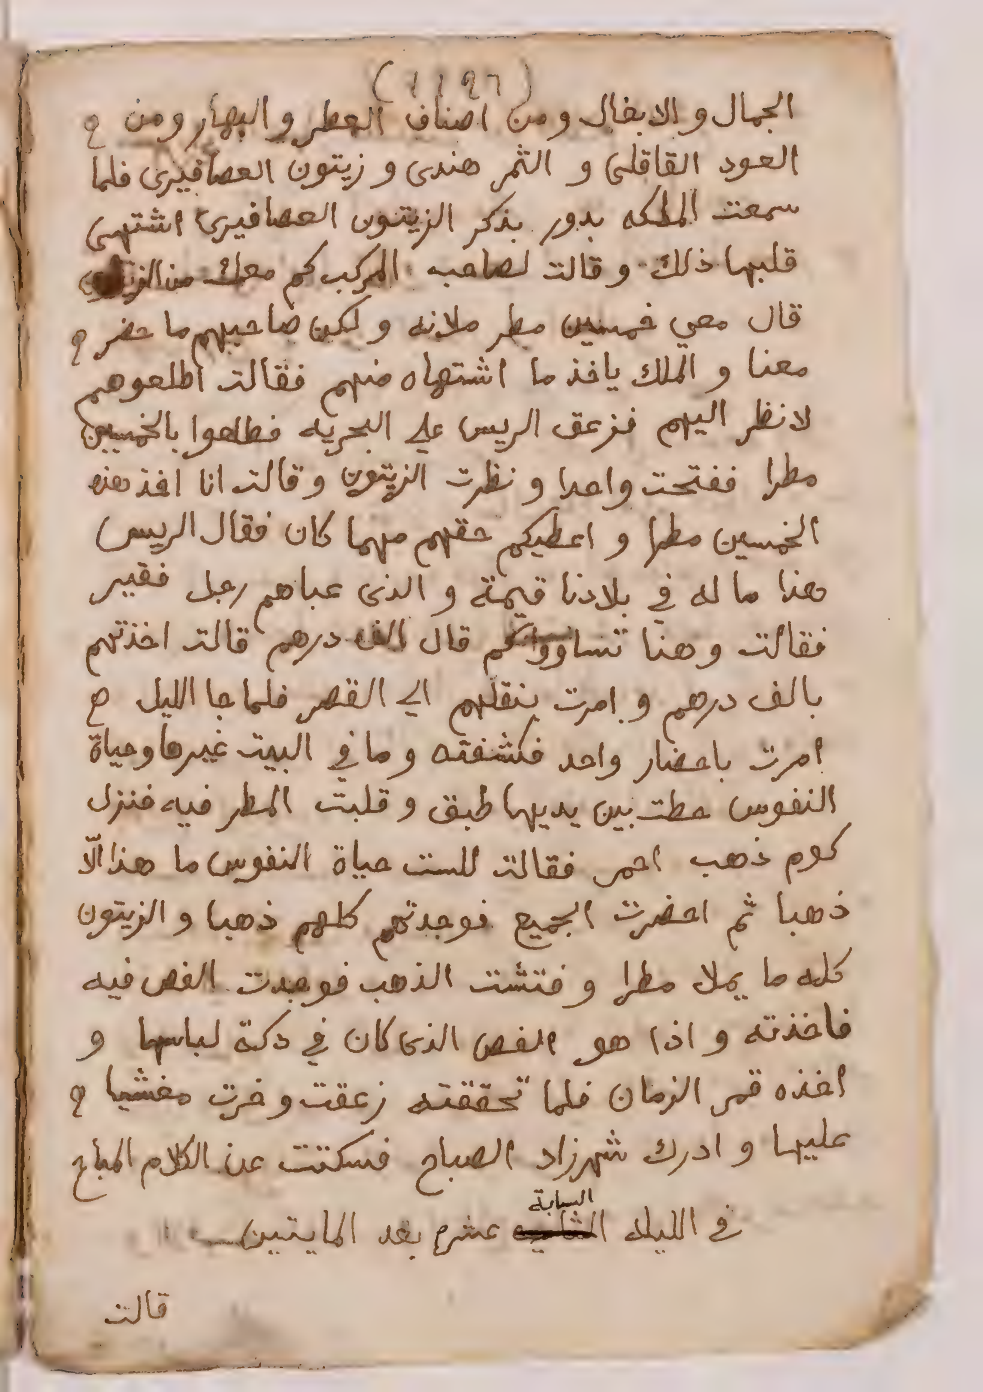 (1196)
الجمال و الابغال ومن اصناف العطر و البهار ومن ح
العود القاقلى و الثمر هندى و زيتون العصافيرى فلما
سمعت الملكه بدور بذكر الزيتون العصافيرى اشتهى
قلبها ذلك و قالت لصاحب المركب كم معك من الزيتون
قال معي خمسين مطر ملانه و لكن صاحبهم ما حضر ح
معنا و الملك ياخذ ما اشتهاه منهم فقالت اطلعوهم
لانظر اليهم فزعق الريس علي البحريه فطلعوا بالخمسين
مطرا ففتحت واحدا و نظرت الزيتون و قالت انا اخذ هذه
الخمسين مطرا و اعطيكم حقهم مهما كان فقال الريس
هذا ما له في بلادنا قيمة و الذى عباهم رجل فقير
فقالت و هنا تساووا كم قال الف درهم قالت اخذتهم
بالف درهم و امرت بنقلهم الي القصر فلما جا الليل ح
امرت باحضار واحد فكشفته و ما في البيت غيرها وحياة
النفوس حطت بين يديها طبق و قلبت المطر فيه فنزل
كوم ذهب احمر فقالت للست حياة النفوس ما هذا الّا
ذهبا ثم احضرت الجميع فوجدتهم كلهم ذهبا و الزيتون
كله ما يملا مطرا و فتشت الذهب فوجدت الفص فيه
فاخذته و اذا هو الفص الذى كان في دكة لباسها و
اخذه قمر الزمان فلما تحققته زعقت و خرت مغشيا ح
عليها و ادرك شهرزاد الصباح فسكتت عن الكلام المباح
السابة
في الليله الثانيه عشره بعد المايتين
قالت